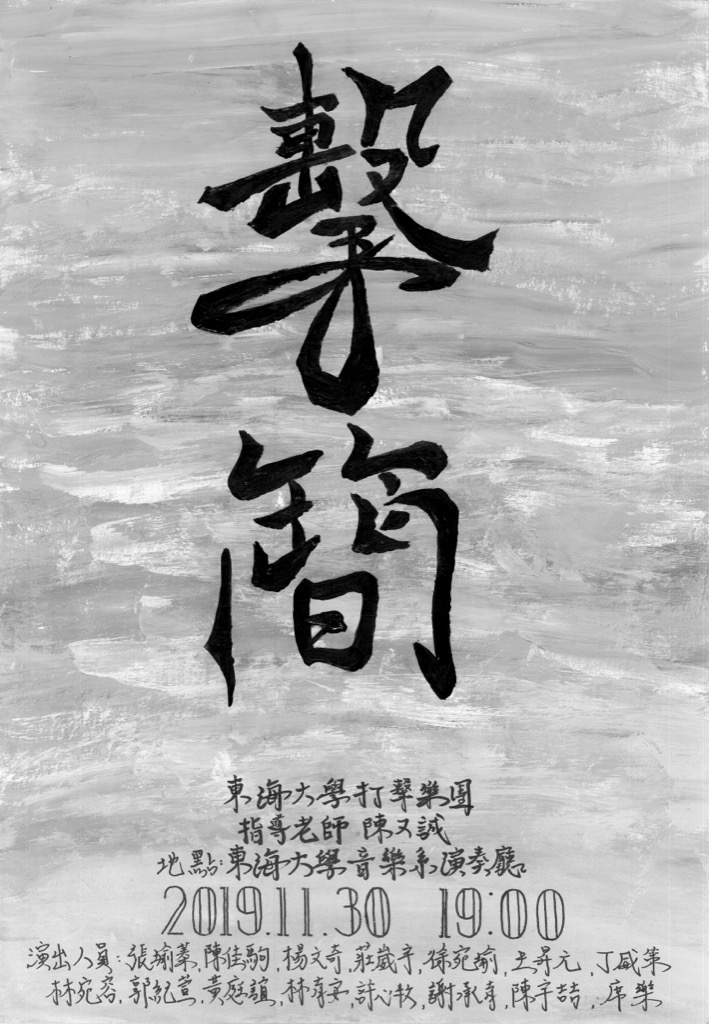 擊
簡
東海大學打擊樂團
指導老師 陳又誠
地點:東海大學音樂系演奏廳
2019.11.30 19:00
演出人員:張瑜蓁,陳佳駒,楊文奇,莊崴宇,徐宛瑜,王昇元,丁威策
林宛蓉,郭紀萱,黃庭誼,林存安,許心牧,謝承,陳宇喆,席樂